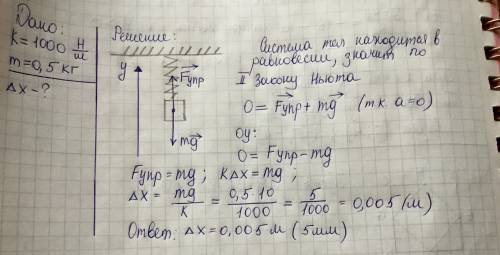 Дано:
k = 1000 Н/м
m = 0,5 кг
Δx - ?
Решение:
y
Fупр
mg
Система тел находится в
равновесии, значит по
II Закону Ньюта
0 = Fупр + mg (тк a=0)
Oy:
0 = Fупр - mg
Fупр = mg ; kΔx = mg ;
Δx = mg/k = 0,5·10/1000 = 5/1000 = 0,005 (м)
Ответ: Δx = 0,005 м (5мм)